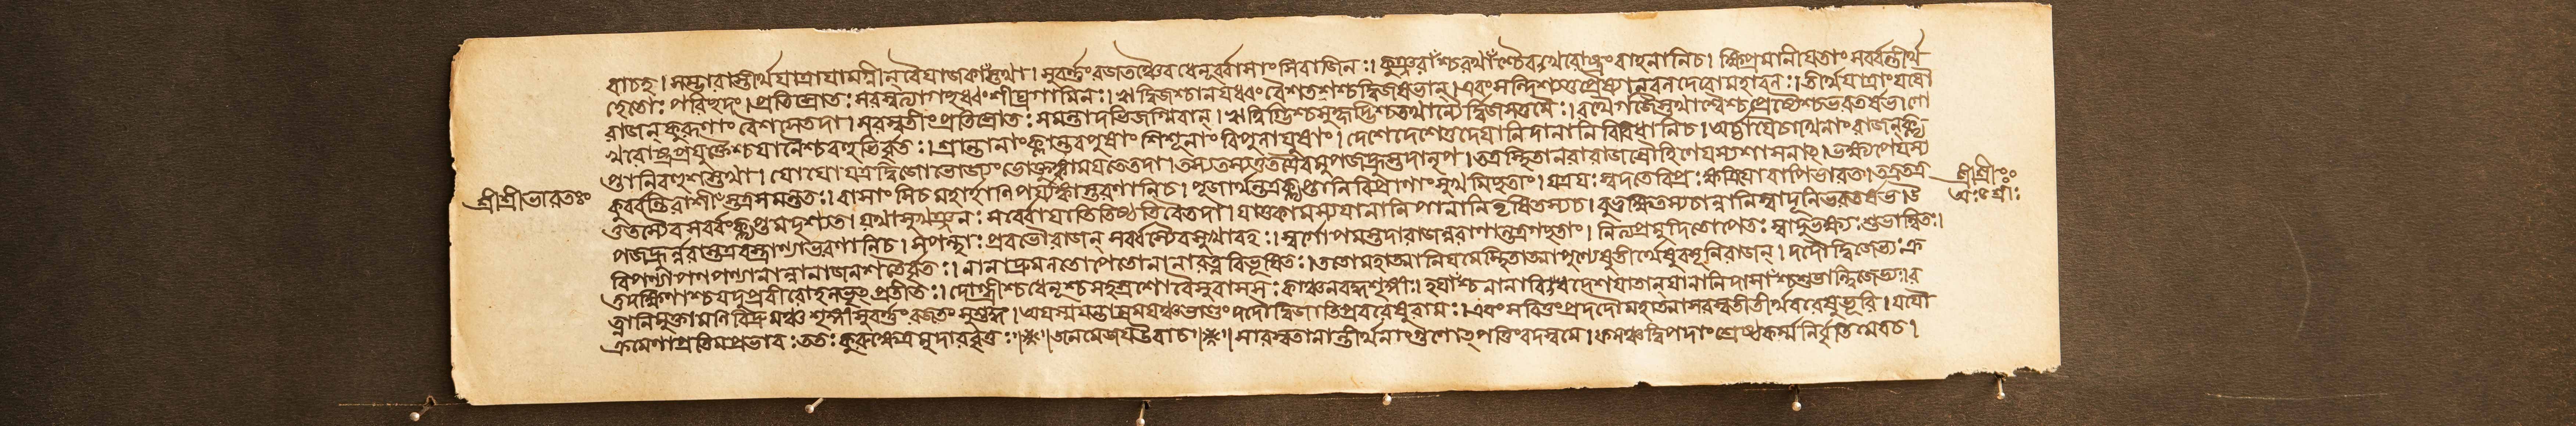 বাচহ। সম্ভারাস্তীর্থযাত্রাযামগ্নীন্ বৈযাজকাংস্তথা। সুবর্ণং রজতঞ্চৈব ধেনূর্ব্বাসাংসিবাজিনঃ। কুঞ্জরাংশ্চরথাংশ্চৈব খরোষ্ট্রং বাহনানিচ। ক্ষিপ্রমানীযতাং সর্ব্বন্তীর্থ
হেতোঃ পরিচ্ছদং। প্রতিস্রোতঃ সরস্বত্যাগচ্ছধ্বং শীঘ্রগামিনঃ। ঋত্বিজশ্চানযধ্বং বৈশতশশ্চদ্বিজর্ষভান্। এবং সন্দিশ্যতুপ্রৈষ্যান্ বলদেবোমহাবলঃ। তীর্থযাত্রাং যযৌ
রাজন্ কুরূণাং বৈশসেতদা। সরস্বতীং প্রতিস্রোতঃ সমন্তাদভিজগ্মিবান্। ঋত্বিগ্ভিশ্চসুহৃদ্ভিশ্চতথান্যৈর্দ্বিজসত্তমৈঃ। রথৈর্গজৈস্তথাশ্বৈশ্চপ্রেষ্যৈশ্চভরতর্ষভ। গো
খরোষ্ট্রপ্রযুক্তৈশ্চযানৈশ্চবহুভির্বৃতঃ। শ্রান্তানাং ক্লান্তবপুষাং শিশূনাং বিপুলাযুষাং। দেশেদেশেতুদেযানিদানানি বিবিধানিচ। অর্চ্চাযৈচার্থিনাং রাজন্ কৢ
প্তানিবহুশস্তথা। যোযোযত্রদ্বিজোভোজ্যং ভোক্তুং কামযতেতদা। তস্যতস্যতুতত্রৈবমুপজহ্রুস্তদানৃপ। তত্রস্থিতানরারাজন্ রৌহিণেযস্যশাসনাৎ। ভক্ষ্যপেযস্য
শ্রীশ্রীভারতঃ
কুর্ব্বন্তিরাশীংস্তত্রসমন্ততঃ। বাসাংসিচমহার্হাণিপর্য্যঙ্কাস্তরণানিচ। পূজার্থন্তত্রকৢপ্তানিবিপ্রাণাং সুখমিচ্ছতাং। যত্রযঃ স্বদতেবিপ্রঃ ক্ষত্রিযোবাপিভারত। তত্রতত্র
শ্রীশ্রীঃ
তুতস্যৈবসর্ব্বং কৢপ্তমদৃশ্যত। যথাসুখঞ্জনঃ সর্ব্বোযাতিতিষ্ঠতিবৈতদা। যাতুকামস্যযানানিপানানিতৃষিতস্যচ। বুভুক্ষিতস্যচান্নানিস্বাদূনিভরতর্ষভ।
পজহ্রুর্নরাস্তত্রবস্ত্রাণ্যাভরণানিচ। সপন্থাঃ প্রবভৌরাজন্ সর্ব্বস্যৈবসুখাবহঃ। স্বর্গোপমস্তদারাজন্নরাণান্তত্রগচ্ছতাং। নিত্যপ্রমুদিতোপেতঃ স্বাদুভক্ষ্যঃ শুভান্বিতঃ।
বিপণ্যাপণপণ্যানান্নানাজনশতৈর্বৃতঃ। নানাদ্রুমলতোপেতোনানারত্নবিভূষিতঃ। ততোমহাত্মানিযমেস্থিতাত্মাপুণ্যেষুতীর্থেষুবসূনিরাজন্। দদৌদ্বিজেভ্যঃ ক্র
তুদক্ষিণাশ্চযদুপ্রবীরোহলভৃৎ প্রতীতঃ। দোগ্ধ্রীশ্চধেনূশ্চসহস্রশোবৈসুবাসসঃ কাঞ্চনবদ্ধশৃঙ্গীঃ। হযাংশ্চনানাবিধদেশযাতান্ যানানিদাসাংশ্চশুভান্দ্বিজেভ্যঃ। র
ত্নানিমুক্তামণিবিদ্রুমঞ্চশৃঙ্গীসুবর্ণং রজতং সুশুভ্রং। অযস্মযন্তাম্রমযঞ্চভাণ্ডং দদৌদ্বিজাতিপ্রবরেষুরামঃ। এবং সবিত্তং প্রদদৌমহাত্মাসরস্বতীতীর্থবরেষুভূরি। যযৌ
ক্রমেণাপ্রতিমপ্রভাবঃ ততঃ কুরুক্ষেত্রমুদারবৃত্তঃ॥ জনমেজযউবাচ॥ সারস্বতানান্তীর্থানাংগুণোৎপত্তিংবদস্বমে। ফলঞ্চদ্বিপদাং শ্রেষ্ঠকর্ম্মনির্বৃতিমেবচ।